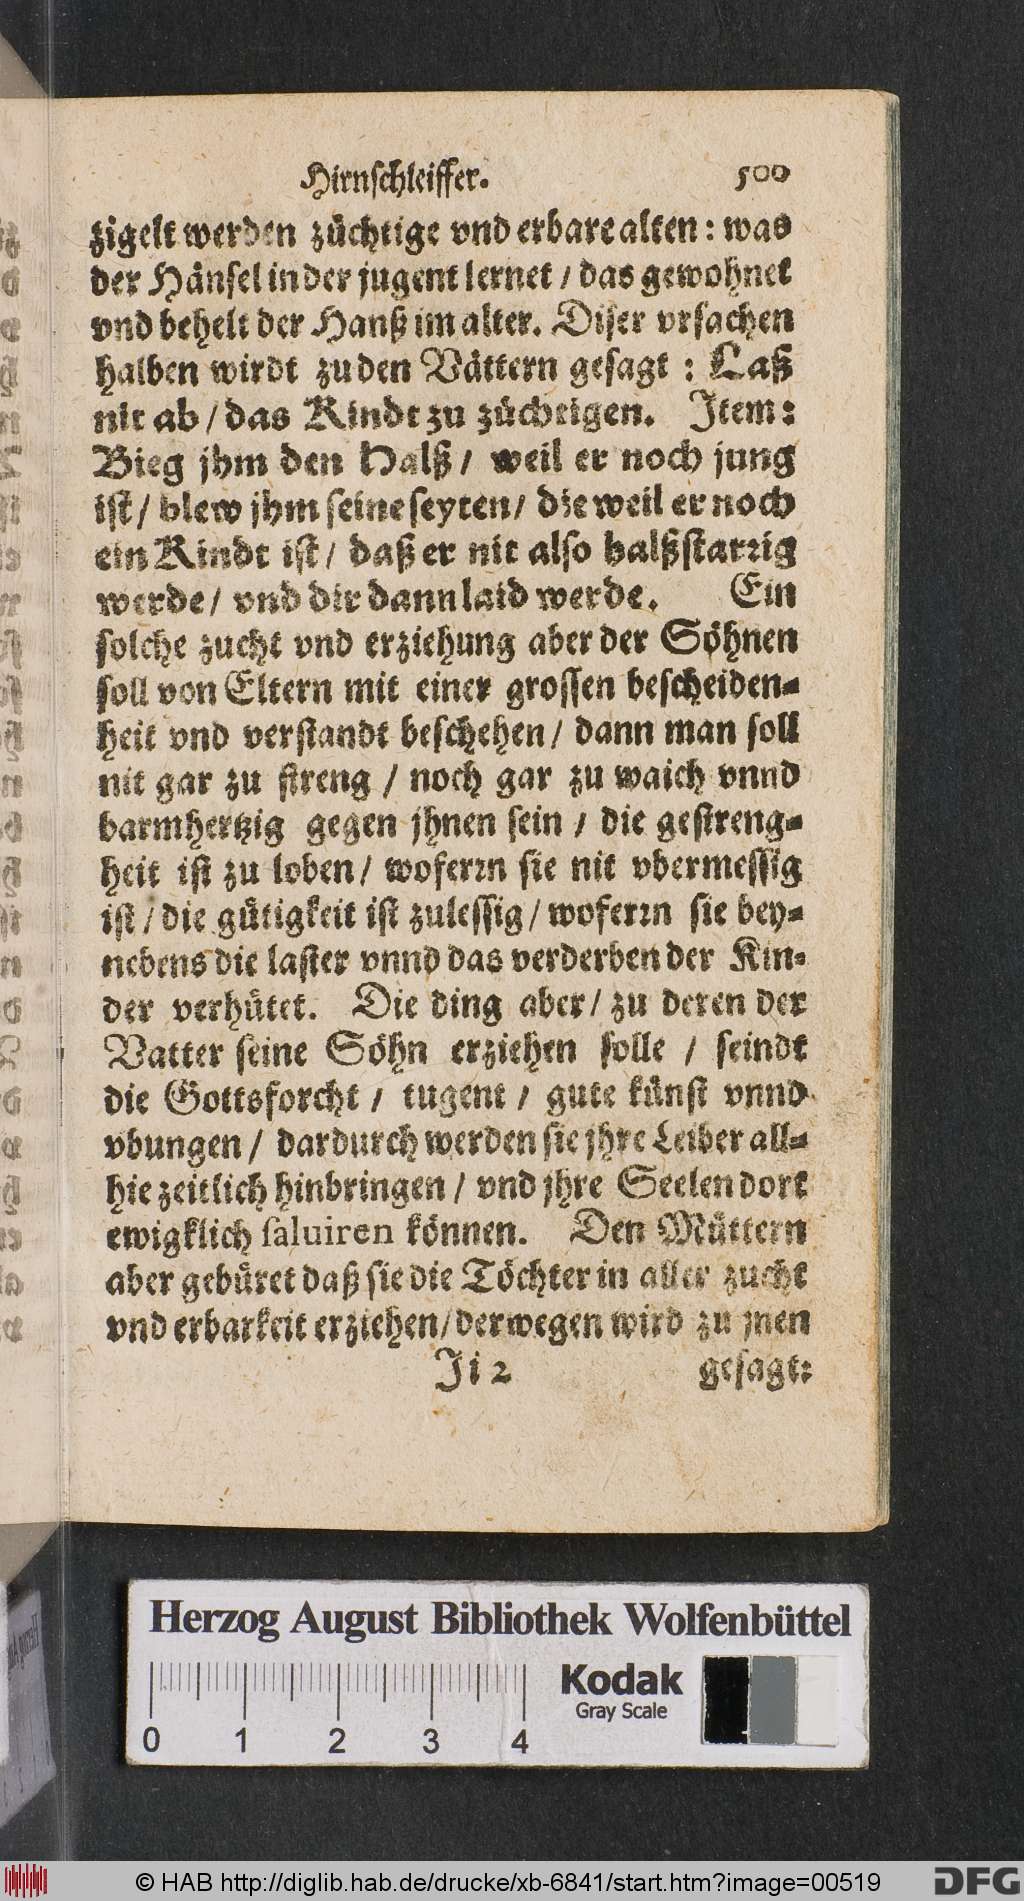 Hirnschleiffer. 500
zigelt werden züchtige vnd erbare alten: was
der Hänsel in der jugent lernet / das gewohnet
vnd behelt der Hanß im alter. Diser vrsachen
halben wirdt zu den Vättern gesagt : Laß
nit ab / das Kindt zu züchtigen. Item:
Bieg jhm den Halß / weil er noch jung
ist / blew jhm seine seyten / die weil er noch
ein Kindt ist / daß er nit also halßstarrig
werde / vnd dir dann laid werde. Ein
solche zucht vnd erziehung aber der Söhnen
soll von Eltern mit einer grossen bescheiden-
heit vnd verstandt beschehen / dann man soll
nit gar zu streng / noch gar zu waich vnnd
barmhertzig gegen jhnen sein / die gestreng-
heit ist zu loben / woferrn sie nit vbermessig
ist / die gütigkeit ist zulessig / woferrn sie bey-
nebens die laster vnnd das verderben der Kin-
der verhütet. Die ding aber / zu deren der
Vatter seine Söhn erziehen solle / seindt
die Gottsforcht / tugent / gute künst vnnd
vbungen / dardurch werden sie jhre Leiber all-
hie zeitlich hinbringen / vnd jhre Seelen dort
ewigklich saluiren können. Den Müttern
aber gebüret daß sie die Töchter in aller zucht
vnd erbarkeit erziehen / derwegen wird zu jnen
Ji 2 gesagt:
Herzog August Bibliothek Wolfenbüttel
Kodak
Gray Scale
0 1 2 3 4
© HAB http://diglib.hab.de/drucke/xb-6841/start.htm?image=00519
DFG